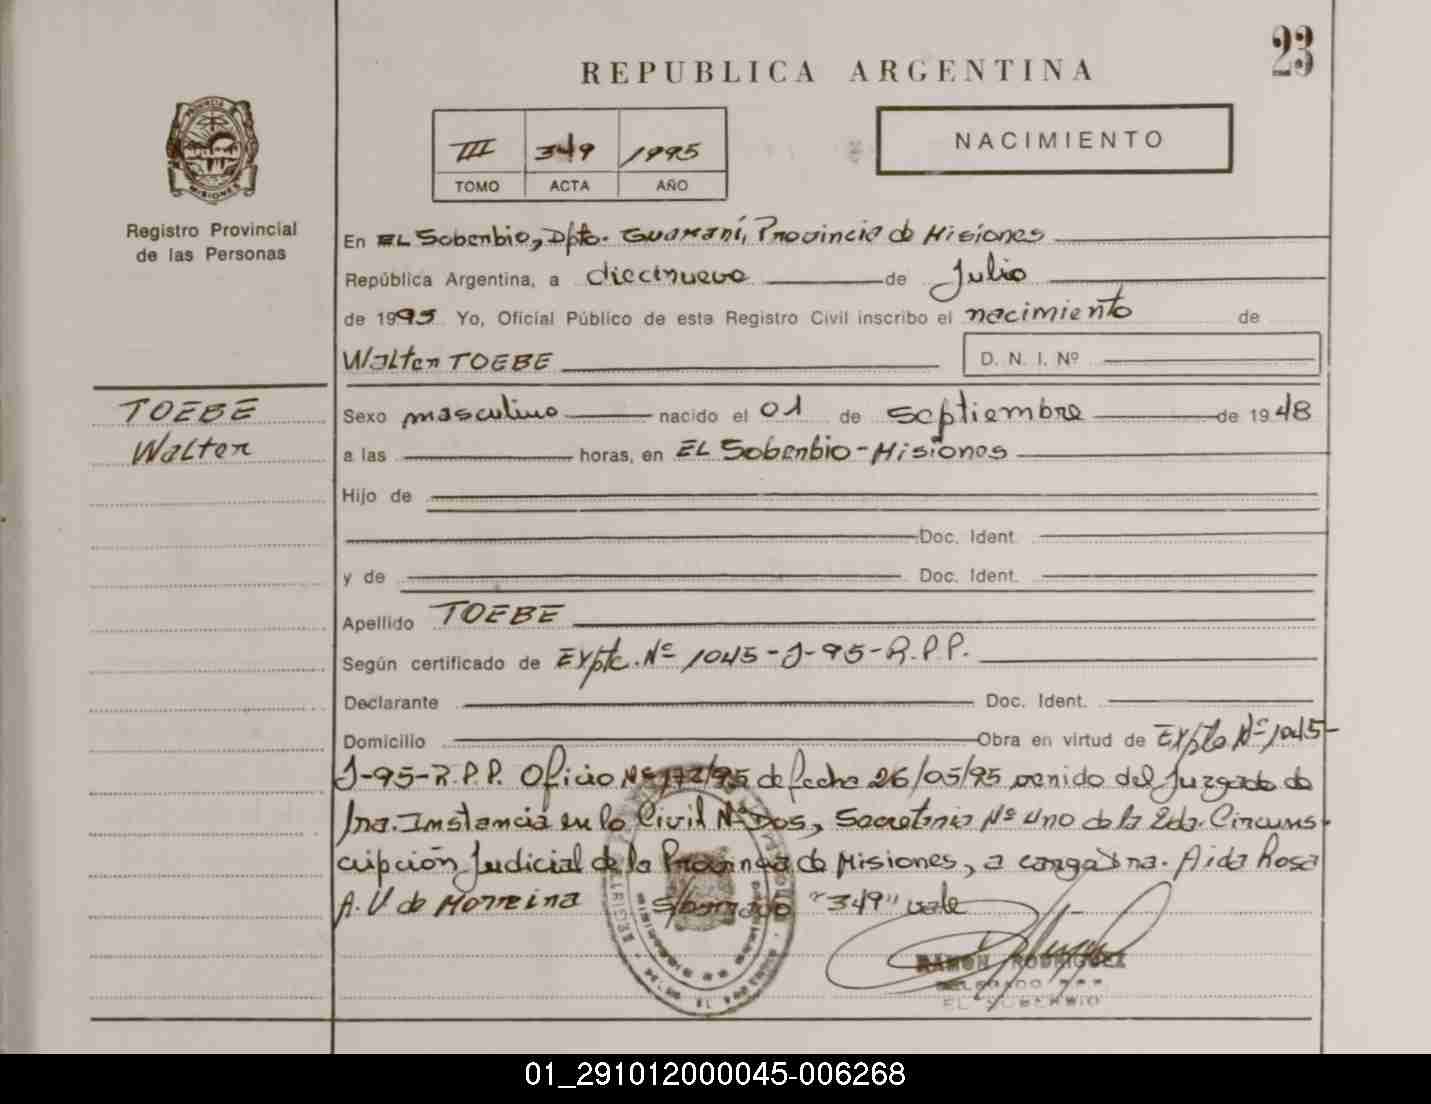 23
REPUBLICA ARGENTINA
NACIMIENTO
III 349 1995
TOMO ACTA AÑO
PROVINCIA DE
MISIONES
Registro Provincial
de las Personas
En EL Soberbio, Dpto. Guaraní, Provincia de Misiones
República Argentina, a diecinueve de Julio
de 1995 Yo, Oficial Público de este Registro Civil inscribo el nacimiento de
Walter TOEBE D. N. I. Nº
TOEBE
Walter
Sexo masculino nacido el 01 de Septiembre de 1948
a las horas, en EL Soberbio - Misiones
Hijo de
Doc. Ident.
y de Doc. Ident.
Apellido TOEBE
Según certificado de Expte. Nº 1045-J-95-R.P.P.
Declarante Doc. Ident.
Domicilio Obra en virtud de Expte Nº 1045-
J-95-R.P.P. Oficio Nº 172/95 de fecha 26/05/95 venido del Juzgado de
1ra. Instancia en lo Civil Nº Dos, Secretaria Nº Uno de la 2da. Circuns-
cripción Judicial de la Provincia de Misiones, a cargo Dra. Aida Rosa
A. V de Morreina S/borrado "349" vale
RAMON RODRIGUEZ
DELEGADO
EL SOBERBIO
01_291012000045-006268